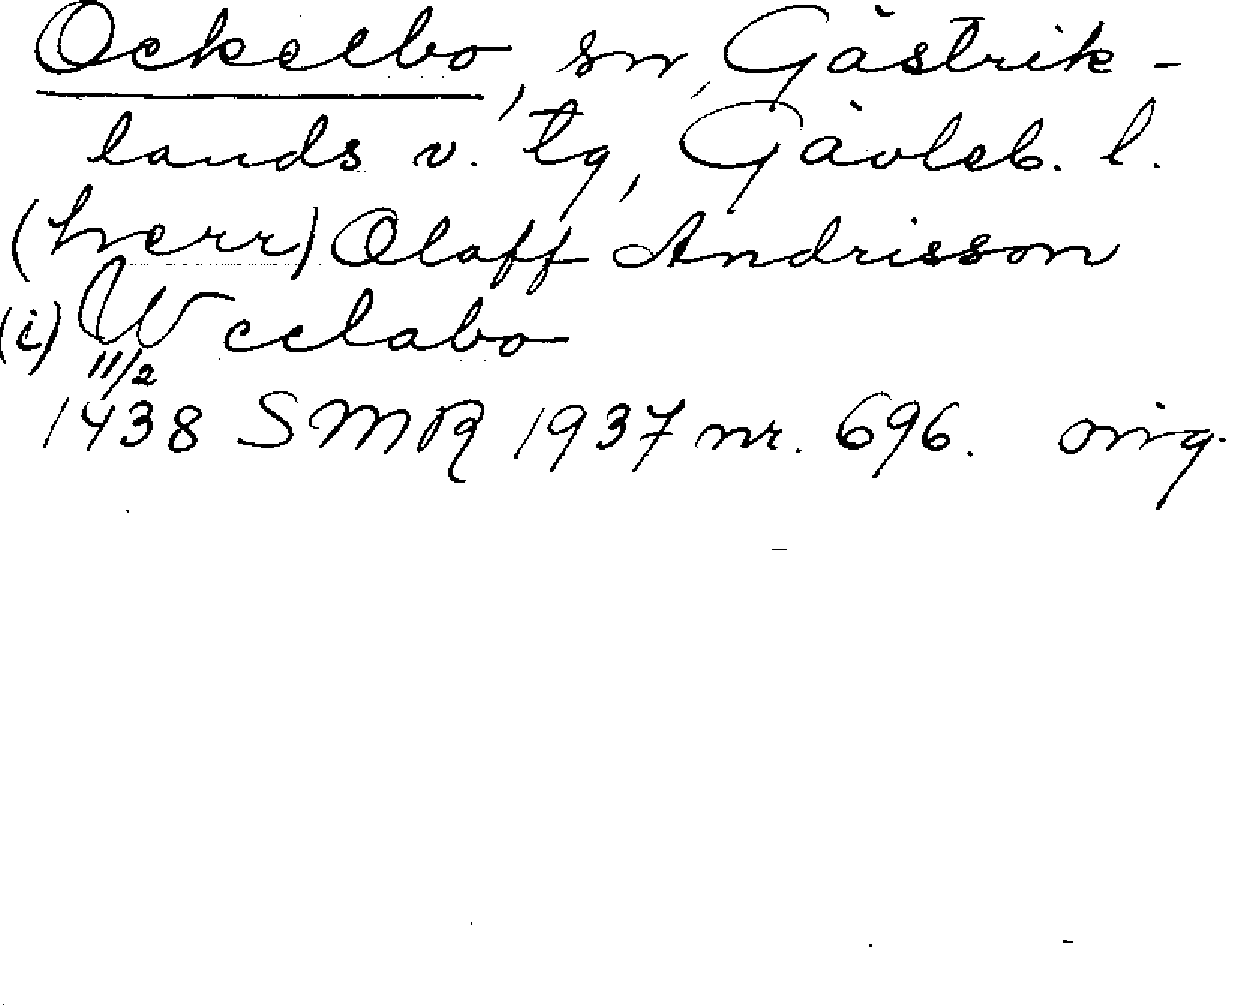 Ockelbo, sn, Gästrik-
lands v. tg, Gävleb. l.
(herr) Olaff Andrisson
(i) Wcclabo
11/2
1438 SMR 1937 nr. 696. orig.